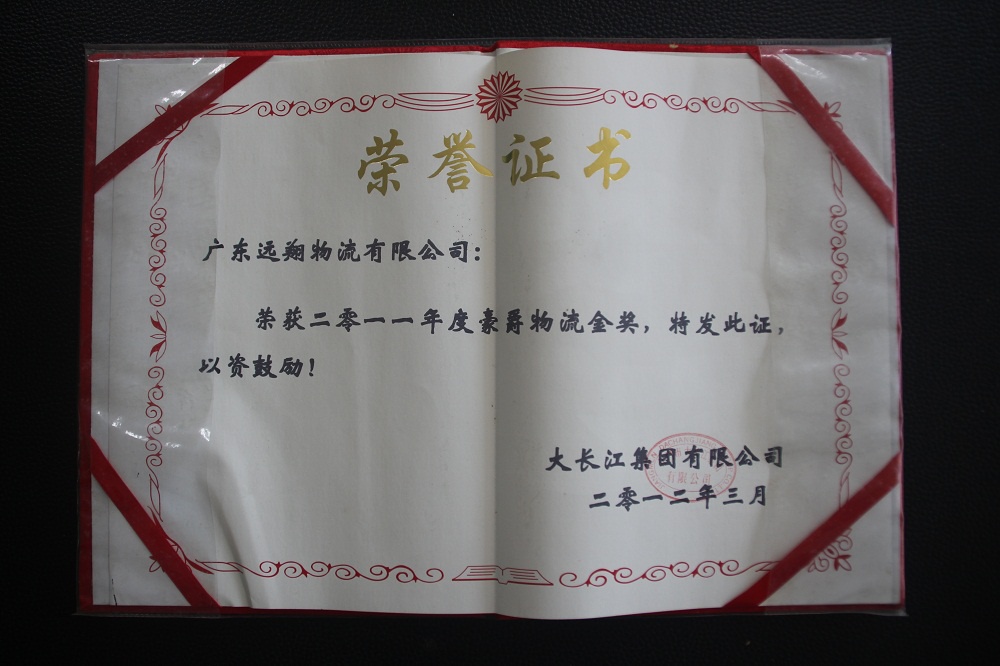 荣誉证书
广东远翔物流有限公司：
荣获二零一一年度豪爵物流金奖，特发此证，
以资鼓励！
大长江集团有限公司
有限公司
二零一二年三月